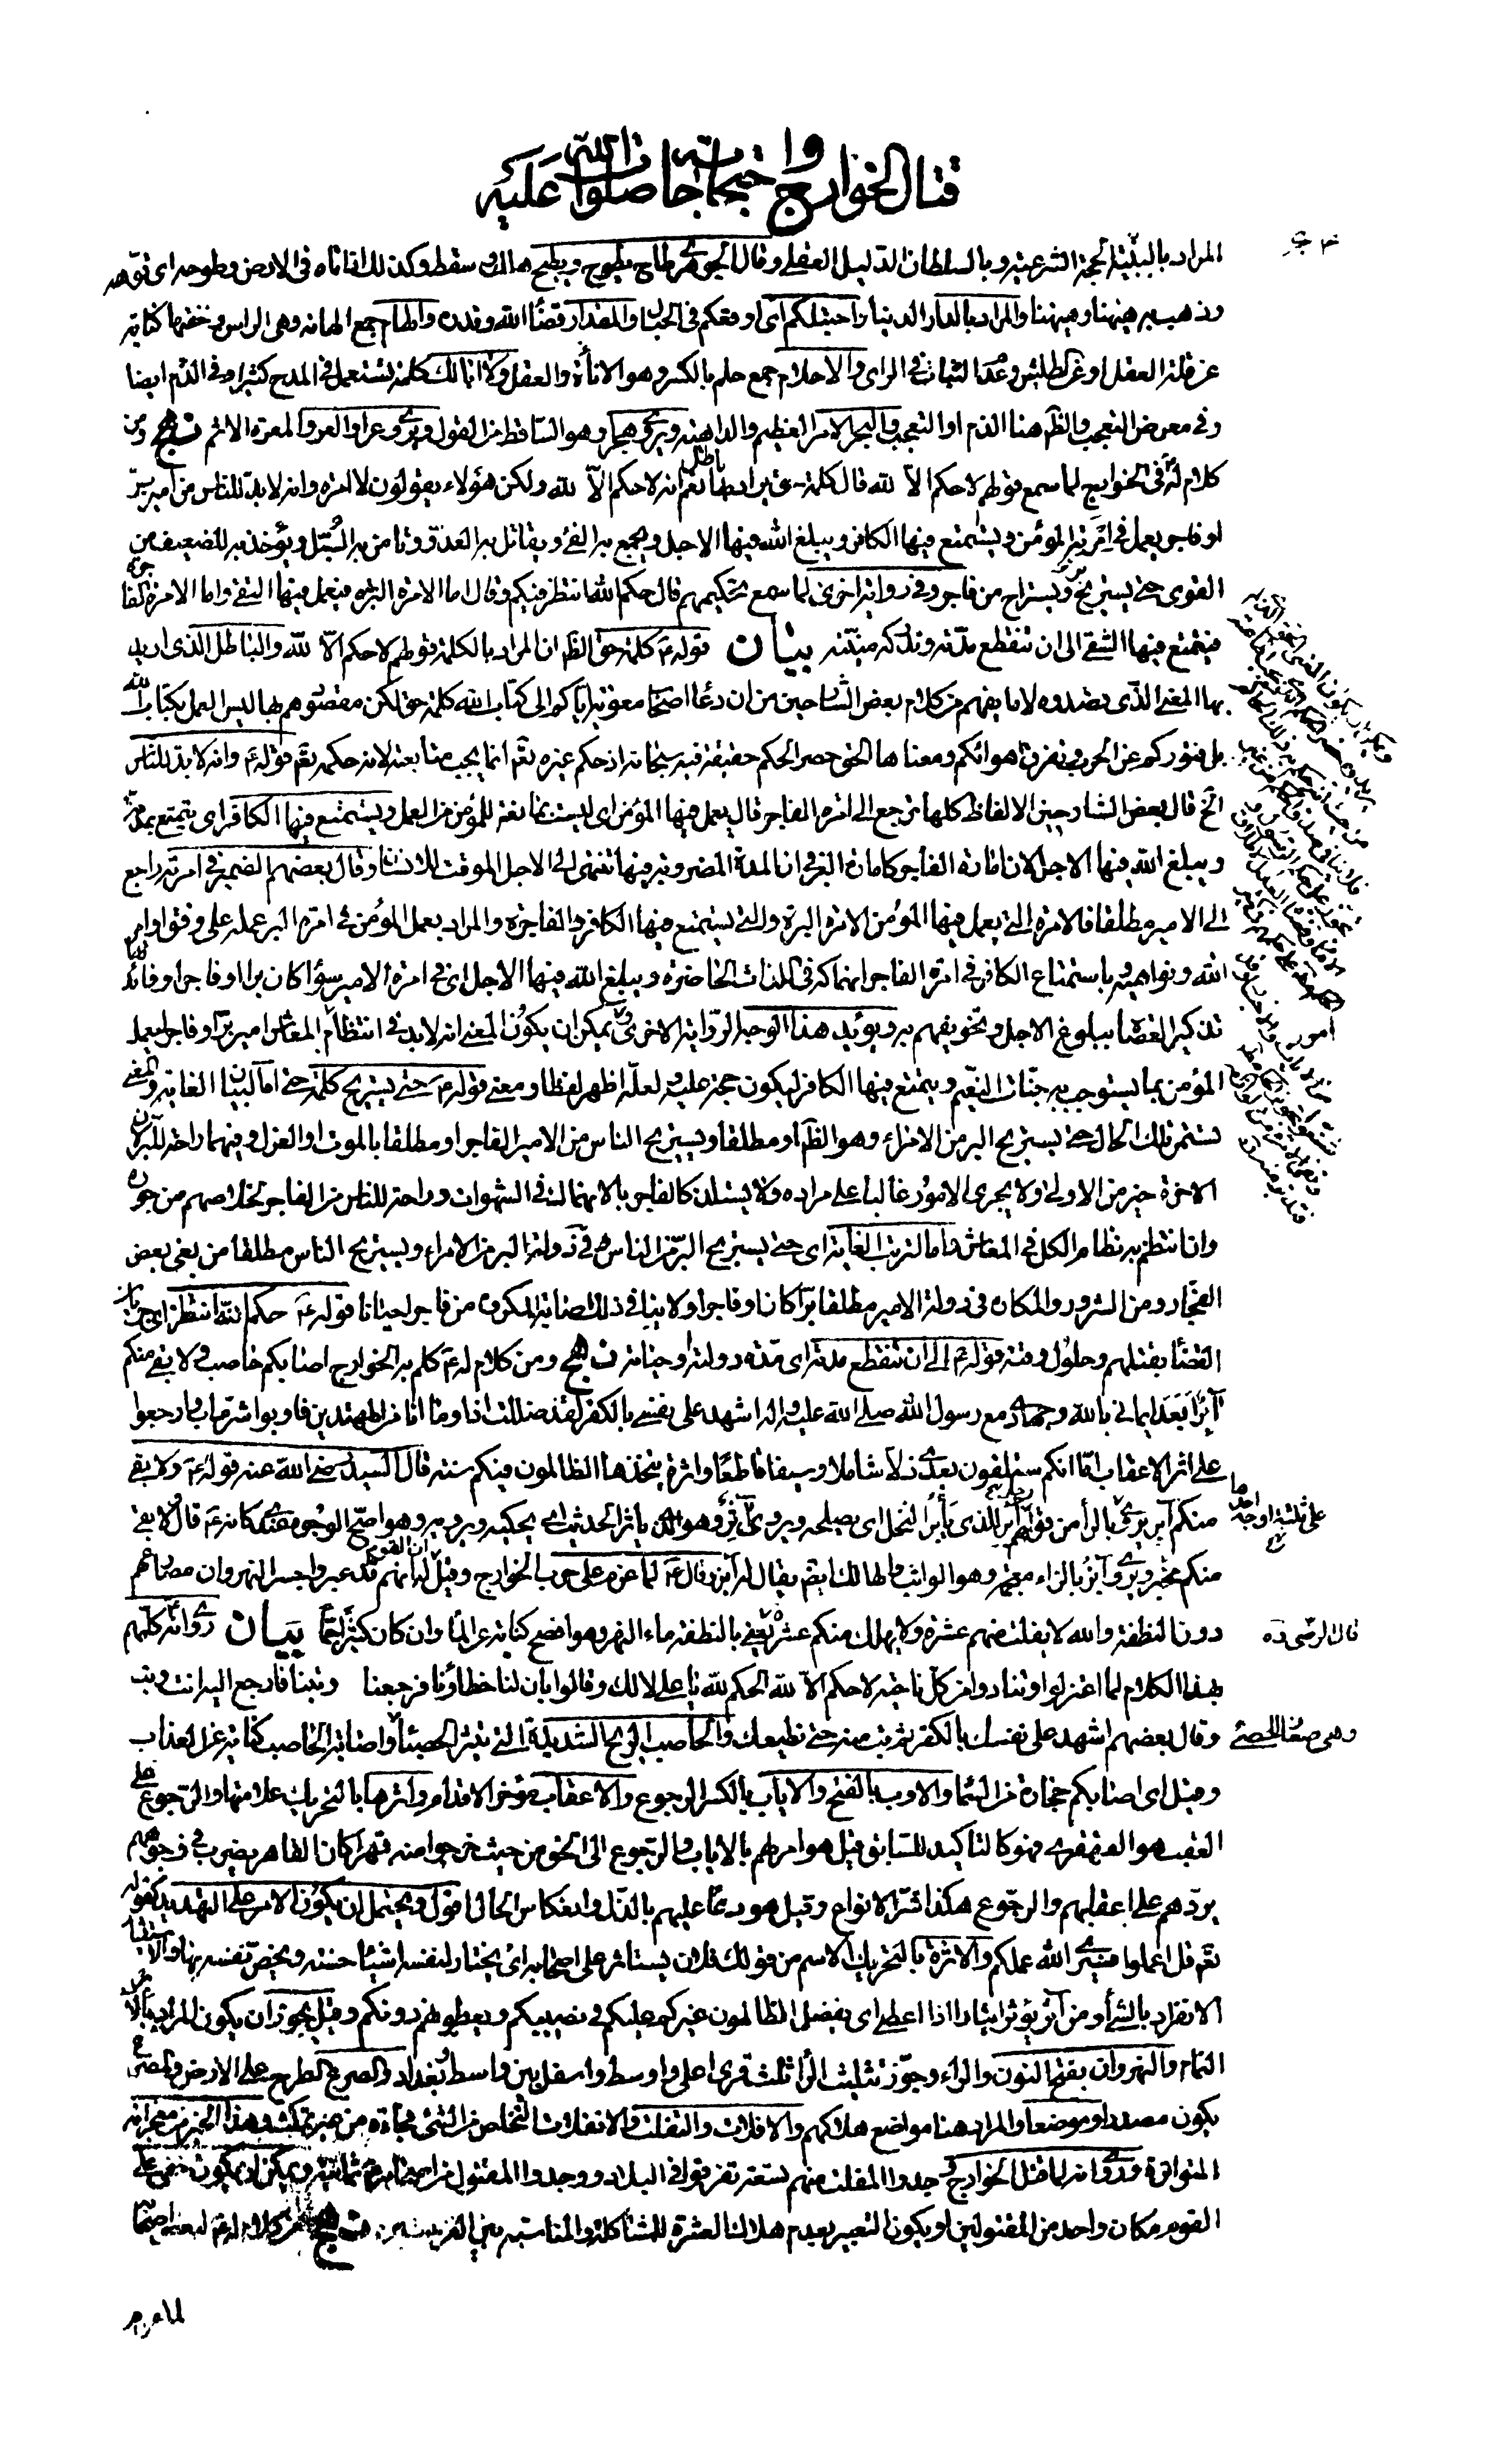 قتال الخوارج واحتجاجاته صلوات الله عليه
المراد بالبينة الحجة الشرعية وبالسلطان الدليل العقلى وقال الجوهرى طاح يطوح ويطيح هلك وسقط وكذلك اذا تاه فى الارض وطوحه اى توّهه
وذهب به هيهنا وهيهنا والمراد بالدار الدنيا واحتبلكم اى اوقعكم فى الحبال والمقدار قضاء الله وقدره والهام جمع الهامه وهى الراس وخفتها كناية
عن قلة العقل او عن الطيش وعدم الثبات فى الراى والاحلام جمع حلم بالكسر وهو الاناة والعقل ولا ابالك كلمة تستعمل فى المدح كثيرا وفى الذم ايضا
وفى معرض التعجب والظ هنا الذم او التعجب والبجر الامر العظيم والداهية ويروى هجرا وهو الساقط من القول ويروى عرا والعر والمعرة الاثم نهج ومن
كلام له ع فى الخوارج لما سمع قولهم لا حكم الا لله قال كلمة حق يراد بها باطل نعم انه لا حكم الا لله ولكن هؤلاء يقولون لا امرة وانه لابد للناس من امير بر
او فاجر يعمل فى امرته المؤمن ويستمتع فيها الكافر ويبلغ الله فيها الاجل ويجمع به الفئ ويقاتل به العدو وتامن به السبل ويؤخذ به للضعيف من
القوى حتى يستريح بر ويستراح من فاجر وفى رواية اخرى لما سمع تحكيمهم قال حكم الله انتظر فيكم وقال اما الامرة البرة فيعمل فيها التقى واما الامرة الفاجرة
فيتمتع فيها الشقى الى ان تنقطع مدته وتدركه منيته بيان قوله ع كلمة حق الظ ان المراد بالكلمة قولهم لا حكم الا لله والباطل الذى اريد
بها المعنى الذى قصدوه لا ما يفهم من كلام بعض الشارحين من ان دعاء اصحاب معوية اياكم الى كتاب الله كلمة حق لكن مقصودهم بها ليس العمل بكتاب الله
بل فتوركم عن الحرب وتفرق اهوائكم ومعناها الحق حصر الحكم حقيقة فيه سبحانه اذ حكم غيره تع انما يجب متابعته لانه حكمه تع قوله ع وانه لابد للناس
الخ قال بعض الشارحين الالفاظ كلها ترجع الى امرة الفاجر قال يعمل فيها المؤمن اى ليست بمانعة للمؤمن من العمل ويستمتع فيها الكافر اى يتمتع بمدته
ويبلغ الله فيها الاجل لان امارة الفاجر كامارة البر فى ان المدة المضروبة فيها تنتهى الى الاجل الموقت للانسان وقال بعضهم الضمير فى امرته راجع
الى الامير مطلقا فالامرة التى يعمل فيها المؤمن الامرة البرة والتى يستمتع فيها الكافر الفاجرة والمراد بعمل المؤمن فى امرة البر عمله على وفق اوامر
الله ونواهيه وباستمتاع الكافر فى امرة الفاجر انهماكه فى اللذات الحاضرة ويبلغ الله فيها الاجل اى فى امرة الامير سواء كان برا او فاجرا وفائدتها
تذكير العصاة ببلوغ الاجل وتخويفهم به ويؤيد هذا الوجه الرواية الاخرى ويمكن ان يكون المعنى انه لابد فى انتظام المعاش امير بر او فاجر ليعمل
المؤمن بما يستوجب به جنات النعيم ويتمتع فيها الكافر ليكون حجة عليه ولعله اظهر لفظا ومعنى قوله ع حتى يستريح كلمة حتى اما لبيان الغاية والمعنى
تستمر تلك الحال حتى يستريح البر من الامراء وهو الظ او مطلقا ويستريح الناس من الامير الفاجر او مطلقا بالموت او العزل وفيهما راحة للبر لان
الاخرة خير من الاولى ولا يجرى الامور غالبا على مراده ولا يستلذ كالفاجر بالانهماك فى الشهوات وراحة للناس من الفاجر لخلاصهم من جوره
وان انتظم به نظام الكل فى المعاش واما لترتب الغاية اى حتى يستريح البر من الناس فى دولة البر من الامراء ويستريح الناس مطلقا من بغى بعض
الفجار ومن الشرور والمكاره فى دولة الامير مطلقا برا كان او فاجرا ولا ينافى ذلك اصابة المكروه من فاجر احيانا قوله ع حكم الله انتظر اى جريان
القضاء بقتلهم وحلول وقته قوله ع الى ان تنقطع مدته اى مدة دولته او حياته نهج ومن كلام له ع كلم به الخوارج اصابكم حاصب ولا بقى منكم
آبر أبعد ايمانى بالله وجهادى مع رسول الله صلى الله عليه وآله اشهد على نفسى بالكفر لقد ضللت اذا وما انا من المهتدين فاوبوا شر ماب وارجعوا
على اثر الاعقاب اما انكم ستلقون بعدى ذلا شاملا وسيفا قاطعا واثرة يتخذها الظالمون فيكم سنة قال السيد رضى الله عنه قوله ع ولا بقى
منكم آبر يروى بالراء من قولهم رجل آبر للذى يأبر النخل اى يصلحه ويروى آثر وهو الذى ياثر الحديث اى يحكيه ويرويه وهو اصح الوجوه عندى كانه ع قال لا بقى
منكم مخبر ويروى آبز بالزاء معجمة وهو الواثب والهالك ايضا يقال له آبز وقال ع لما عزم على حرب الخوارج وقيل له انهم ان القوم قد عبروا جسر النهروان مصارعهم
دون النطفة والله لا يفلت منهم عشرة ولا يهلك منكم عشرة يعنى بالنطفة ماء النهر وهو افصح كناية عن الماء وان كان كثيرا جما بيان روى انه ع كلمهم
بهذا الكلام لما اعتزلوا وتنادوا من كل ناحية لا حكم الا لله الحكم لله يا على لا لك وقالوا بان لنا خطاؤنا فرجعنا وتبنا فارجع اليه انت وتب
وقال بعضهم اشهد على نفسك بالكفر ثم تب منه حتى نطيعك والحاصب الريح الشديدة التى تثير الحصباء واصابة الحاصب كناية عن العذاب
وقيل اى اصابكم حجارة من السماء والاوب بالفتح والاياب بالكسر الرجوع والاعقاب مؤخر الاقدام واثرها بالتحريك علامتها والرجوع على
العقب هو القهقرى فهو كالتاكيد للسابق قيل هو امر لهم بالاياب والرجوع الى الحق من حيث خرجوا منه قهرا كان القاهر يضرب فى وجوههم
يردهم على اعقابهم والرجوع هكذا شر الانواع وقيل هو دعاء عليهم بالذل وانعكاس الحال اقول ويحتمل ان يكون الامر على التهديد كقوله
تع قل اعملوا فسيرى الله عملكم والاثرة بالتحريك الاسم من قولك فلان يستاثر على اصحابه اى يختار لنفسه اشياء حسنة ويخص نفسه بها والاستيثار
الانفراد بالشئ او من آثر يؤثر ايثارا اذا اعطى اى يفضل الظالمون غيركم عليكم فى نصيبكم ويعطونهم دونكم وقيل يجوز ان يكون المراد بالاثرة
النمام والنهروان بفتح النون والراء وجوز تثليث الراء ثلث قرى اعلى واوسط واسفل بين واسط وبغداد والصرع الطرح على الارض والمصرع
يكون مصدرا وموضعا والمراد هنا مواضع هلاكهم والافلات والتفلت والانفلات التخلص من الشئ فجاءة من غير تمكث وهذا الخبر من معجزاته
المتواترة وروى انه لما قتل الخوارج وجدوا المفلت منهم تسعة تفرقوا فى البلاد ووجدوا المقتول من اصحابه ع ثمانية ويمكن ان يكون خفى على
القوم مكان واحد من المقتولين او يكون التعبير بعدم هلاك العشرة للمشاكلة والمناسبة بين القرينتين نهج من كلام له ع لبعض اصحابه
على ثلثة اوجه احدها
قال الرضى ره
وهى صغار الحصى